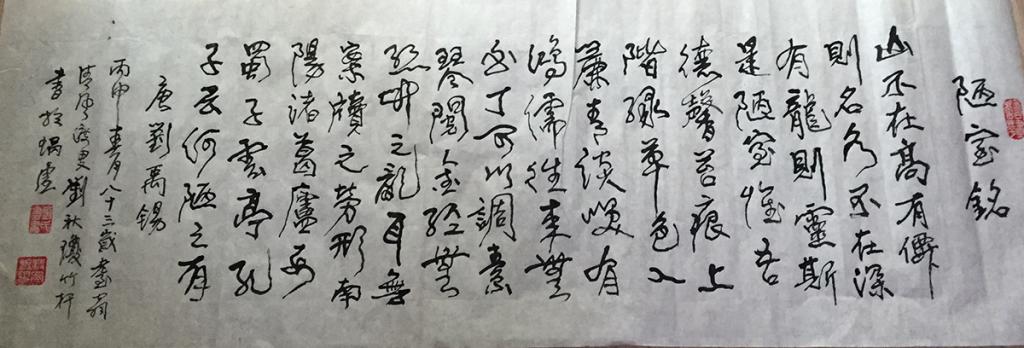 陋室銘
山不在高有僊
則名水不在深
有龍則靈斯
是陋室惟吾
德馨苔痕上
階綠草色入
簾青談笑有
鴻儒往來無
白丁可以調素
琴閱金經無
絲竹之亂耳無
案牘之勞形南
陽諸葛廬西
蜀子雲亭孔
子云何陋之有
唐劉禹錫
丙申春月八十三歲書翁
劉秋瓊竹杆
書於